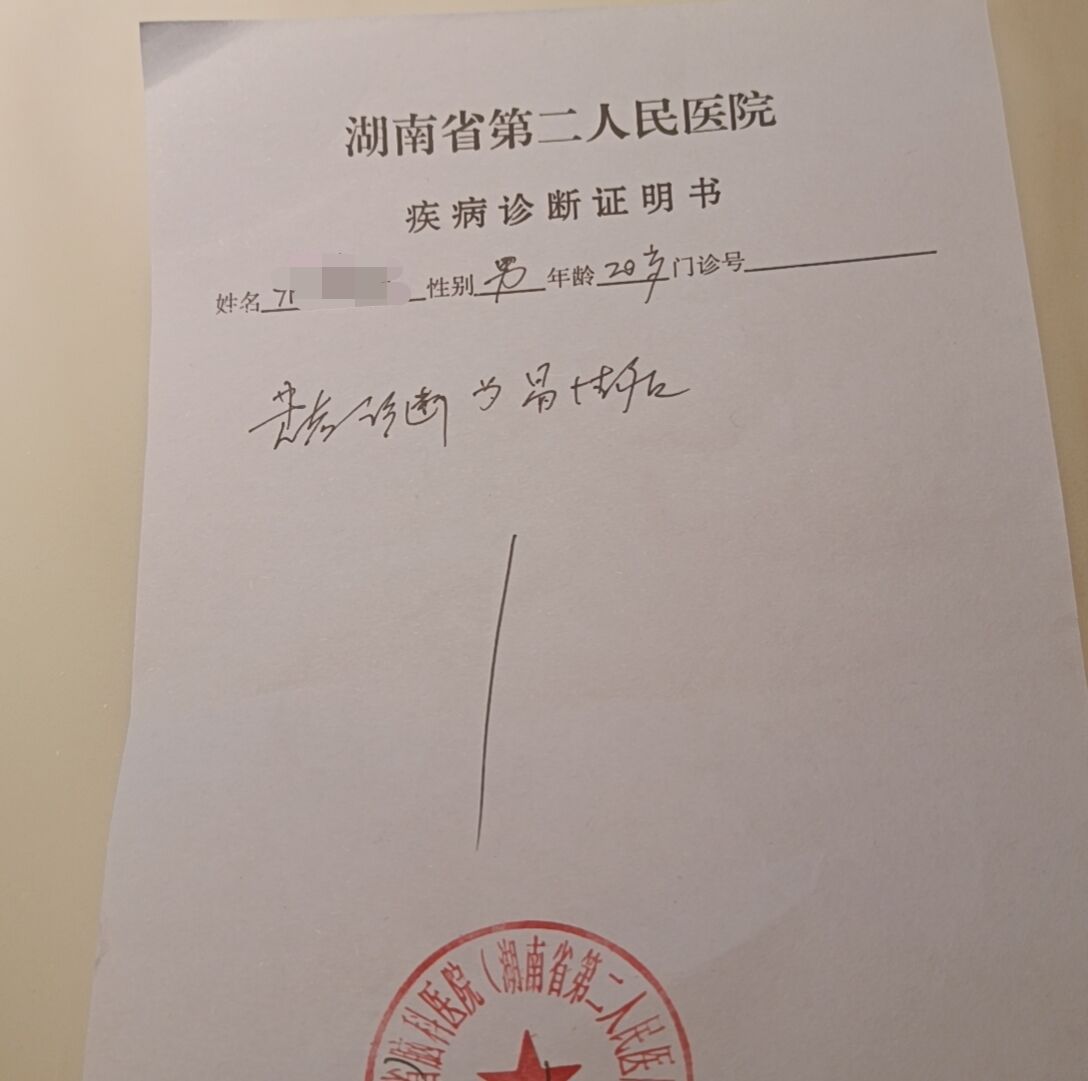 湖南省第二人民医院
疾病诊断证明书
姓名 性别 男 年龄 20岁 门诊号
患者诊断为
省脑科医院（湖南省第二人民医